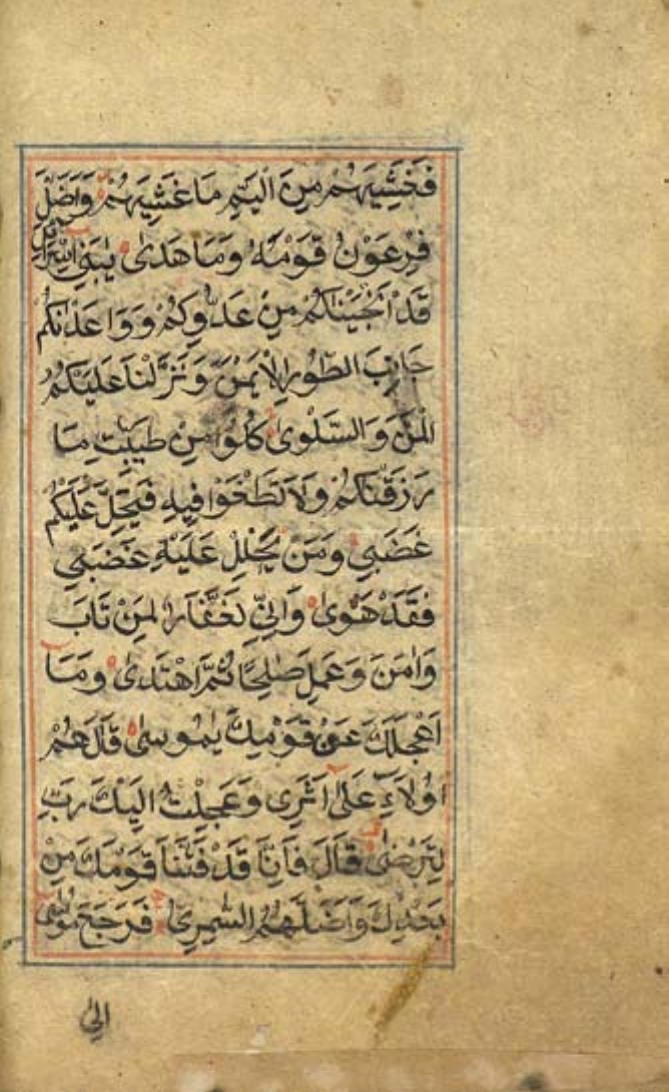 فَغَشِيَهُمْ مِنَ الْيَمِّ مَا غَشِيَهُمْ وَاَضَلَّ
فِرْعَوْنُ قَوْمَهُ وَمَا هَدٰى يٰبَنِىْ اِسْرَائِيْلَ
قَدْ اَنْجَيْنٰكُمْ مِنْ عَدُوِّكُمْ وَوَاعَدْنٰكُمْ
جَانِبَ الطُّوْرِ الْاَيْمَنَ وَنَزَّلْنَا عَلَيْكُمُ
الْمَنَّ وَالسَّلْوٰى كُلُوْا مِنْ طَيِّبٰتِ مَا
رَزَقْنٰكُمْ وَلَا تَطْغَوْا فِيْهِ فَيَحِلَّ عَلَيْكُمْ
غَضَبِىْ وَمَنْ يَحْلِلْ عَلَيْهِ غَضَبِىْ
فَقَدْ هَوٰى وَاِنِّىْ لَغَفَّارٌ لِمَنْ تَابَ
وَاٰمَنَ وَعَمِلَ صَالِحًا ثُمَّ اهْتَدٰى وَمَا
اَعْجَلَكَ عَنْ قَوْمِكَ يٰمُوْسٰى قَالَ هُمْ
اُولَاۤءِ عَلٰى اَثَرِىْ وَعَجِلْتُ اِلَيْكَ رَبِّ
لِتَرْضٰى قَالَ فَاِنَّا قَدْ فَتَنَّا قَوْمَكَ مِنْ
بَعْدِكَ وَاَضَلَّهُمُ السَّامِرِىُّ فَرَجَعَ مُوْسٰى
اِلٰى